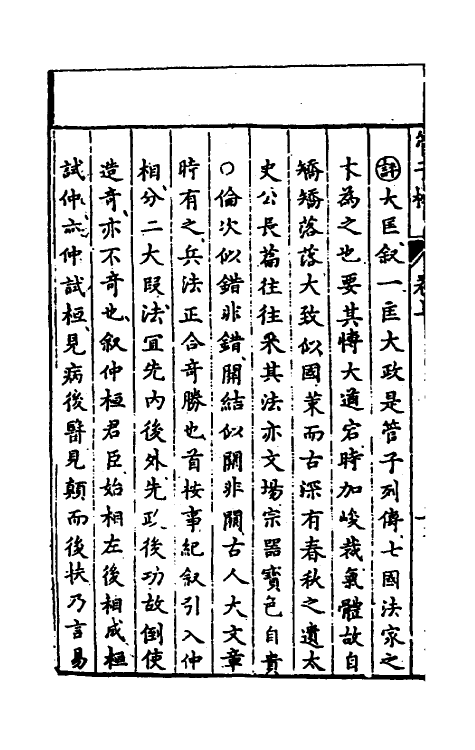 評大匡叙一匡大政是管子列傳七國法家之
大為之也要其博大適宕時加峻裁氣體故自
矯矯落落大致似國策而古深有春秋之遺太
史公長篇往往采其法亦文場宗器寳色自貴
○倫次似錯非錯關結似關非關古人大文章
時有之兵法正合奇勝也首按事紀叙引入仲
相分二大段法宜先內後外先政後功故倒使
造奇亦不奇也叙仲桓君臣始相左後相成桓
試仲亦仲試桓見病後醫見顛而後扶乃言易